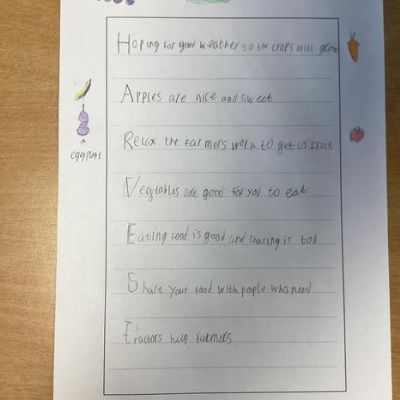 Hoping for good weather so the crops will grow
Apples are nice and sweet
Relax the farmers work to get us fruit
eggplant
Vegtables are good for you to eat
Eating food is good and sharing is too
Share your food with people who need
Tractors help farmers